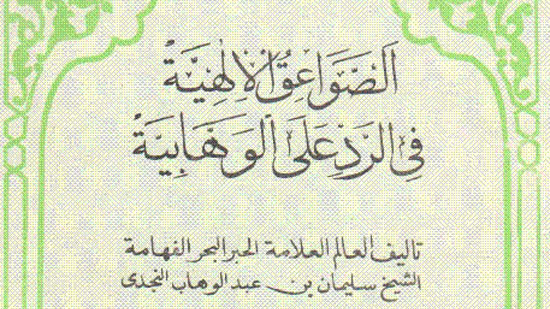 الصَّوَاعِقُ الْإِلٰهِيَّةُ
فِي الرَّدِّ عَلَى الْوَهَّابِيَّةِ
تاليف العالم العلامة الحبر البحر الفهامة
الشيخ سليمان بن عبد الوهاب النجدى